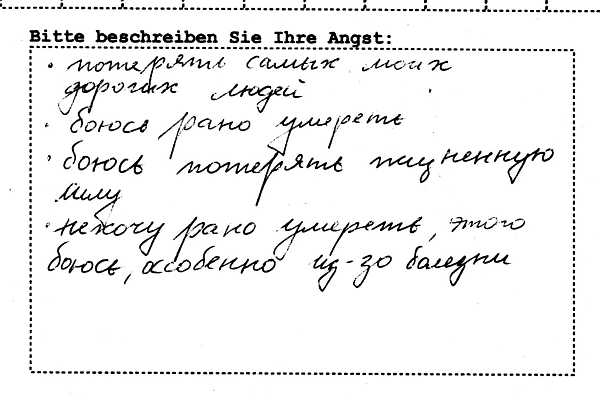 Bitte beschreiben Sie Ihre Angst:
· потерять самых моих
дорогих людей
· боюсь рано умереть
· боюсь потерять жизненную
силу
· не хочу рано умереть, этого
боюсь, особенно из-за болезни